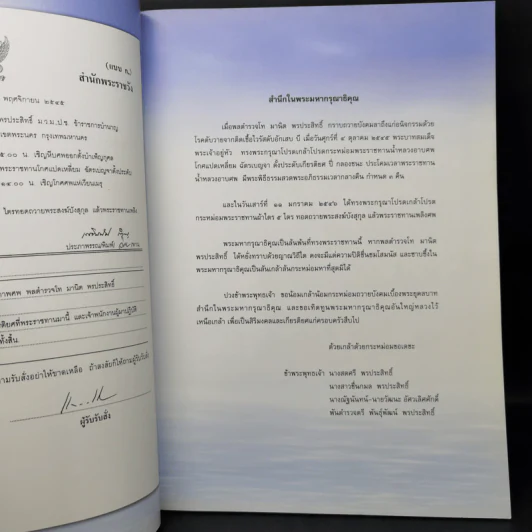 (แบบ ค.)
สำนักพระราชวัง
พฤศจิกายน ๒๕๔๕
พรประสิทธิ์ ม.ว.ม.,ป.ช. ข้าราชการบำนาญ
เขตพระนคร กรุงเทพมหานคร
๕.๐๐ น. เชิญหีบศพออกตั้งบำเพ็ญกุศล
พระราชทานโกศแปดเหลี่ยม ฉัตรเบญจาตั้งประดับ
๑๔.๐๐ น. เชิญโกศศพแห่เวียนเมรุ
ไตรทอดถวายพระสงฆ์บังสุกุล แล้วพระราชทานเพลิง
ประภาพรรณพิมพ์/
าพศพ พลตำรวจโท มานิต พรประสิทธิ์
ติยศที่พระราชทานมานี้ และเจ้าพนักงานผู้มาปฏิบัติ
ทั้งสิ้น
ามรับสั่งอย่าให้ขาดเหลือ ถ้าสงสัยก็ให้ถามผู้รับรับสั่ง
ผู้รับรับสั่ง
สำนึกในพระมหากรุณาธิคุณ
เมื่อพลตำรวจโท มานิต พรประสิทธิ์ กราบถวายบังคมลาถึงแก่อนิจกรรมด้วย
โรคตับวายจากติดเชื้อไวรัสตับอักเสบ บี เมื่อวันศุกร์ที่ ๔ ตุลาคม ๒๕๔๕ พระบาทสมเด็จ
พระเจ้าอยู่หัว ทรงพระกรุณาโปรดเกล้าโปรดกระหม่อมพระราชทานน้ำหลวงอาบศพ
โกศแปดเหลี่ยม ฉัตรเบญจา ตั้งประดับเกียรติยศ ปี่ กลองชนะ ประโคมเวลาพระราชทาน
น้ำหลวงอาบศพ มีพระพิธีธรรมสวดพระอภิธรรมเวลากลางคืน กำหนด ๓ คืน
และในวันเสาร์ที่ ๑๑ มกราคม ๒๕๔๖ ได้ทรงพระกรุณาโปรดเกล้าโปรด
กระหม่อมพระราชทานผ้าไตร ๕ ไตร ทอดถวายพระสงฆ์บังสุกุล แล้วพระราชทานเพลิงศพ
พระมหากรุณาธิคุณเป็นล้นพ้นที่ทรงพระราชทานนี้ หากพลตำรวจโท มานิต
พรประสิทธิ์ ได้หยั่งทราบด้วยญาณวิถีใด คงจะมีแต่ความปีติชื่นชมโสมนัส และซาบซึ้งใน
พระมหากรุณาธิคุณเป็นล้นเกล้าล้นกระหม่อมหาที่สุดมิได้
ปวงข้าพระพุทธเจ้า ขอน้อมเกล้าน้อมกระหม่อมถวายบังคมเบื้องพระยุคลบาท
สำนึกในพระมหากรุณาธิคุณ และขอเทิดทูนพระมหากรุณาธิคุณอันใหญ่หลวงไว้
เหนือเกล้า เพื่อเป็นสิริมงคลและเกียรติยศแก่ครอบครัวสืบไป
ด้วยเกล้าด้วยกระหม่อมขอเดชะ
ข้าพระพุทธเจ้า นางสดศรี พรประสิทธิ์
นางสาวชื่นกมล พรประสิทธิ์
นางณัฐนันทน์-นายวัฒนะ อัศวเลิศศักดิ์
พันตำรวจตรี พันธุ์พัฒน์ พรประสิทธิ์